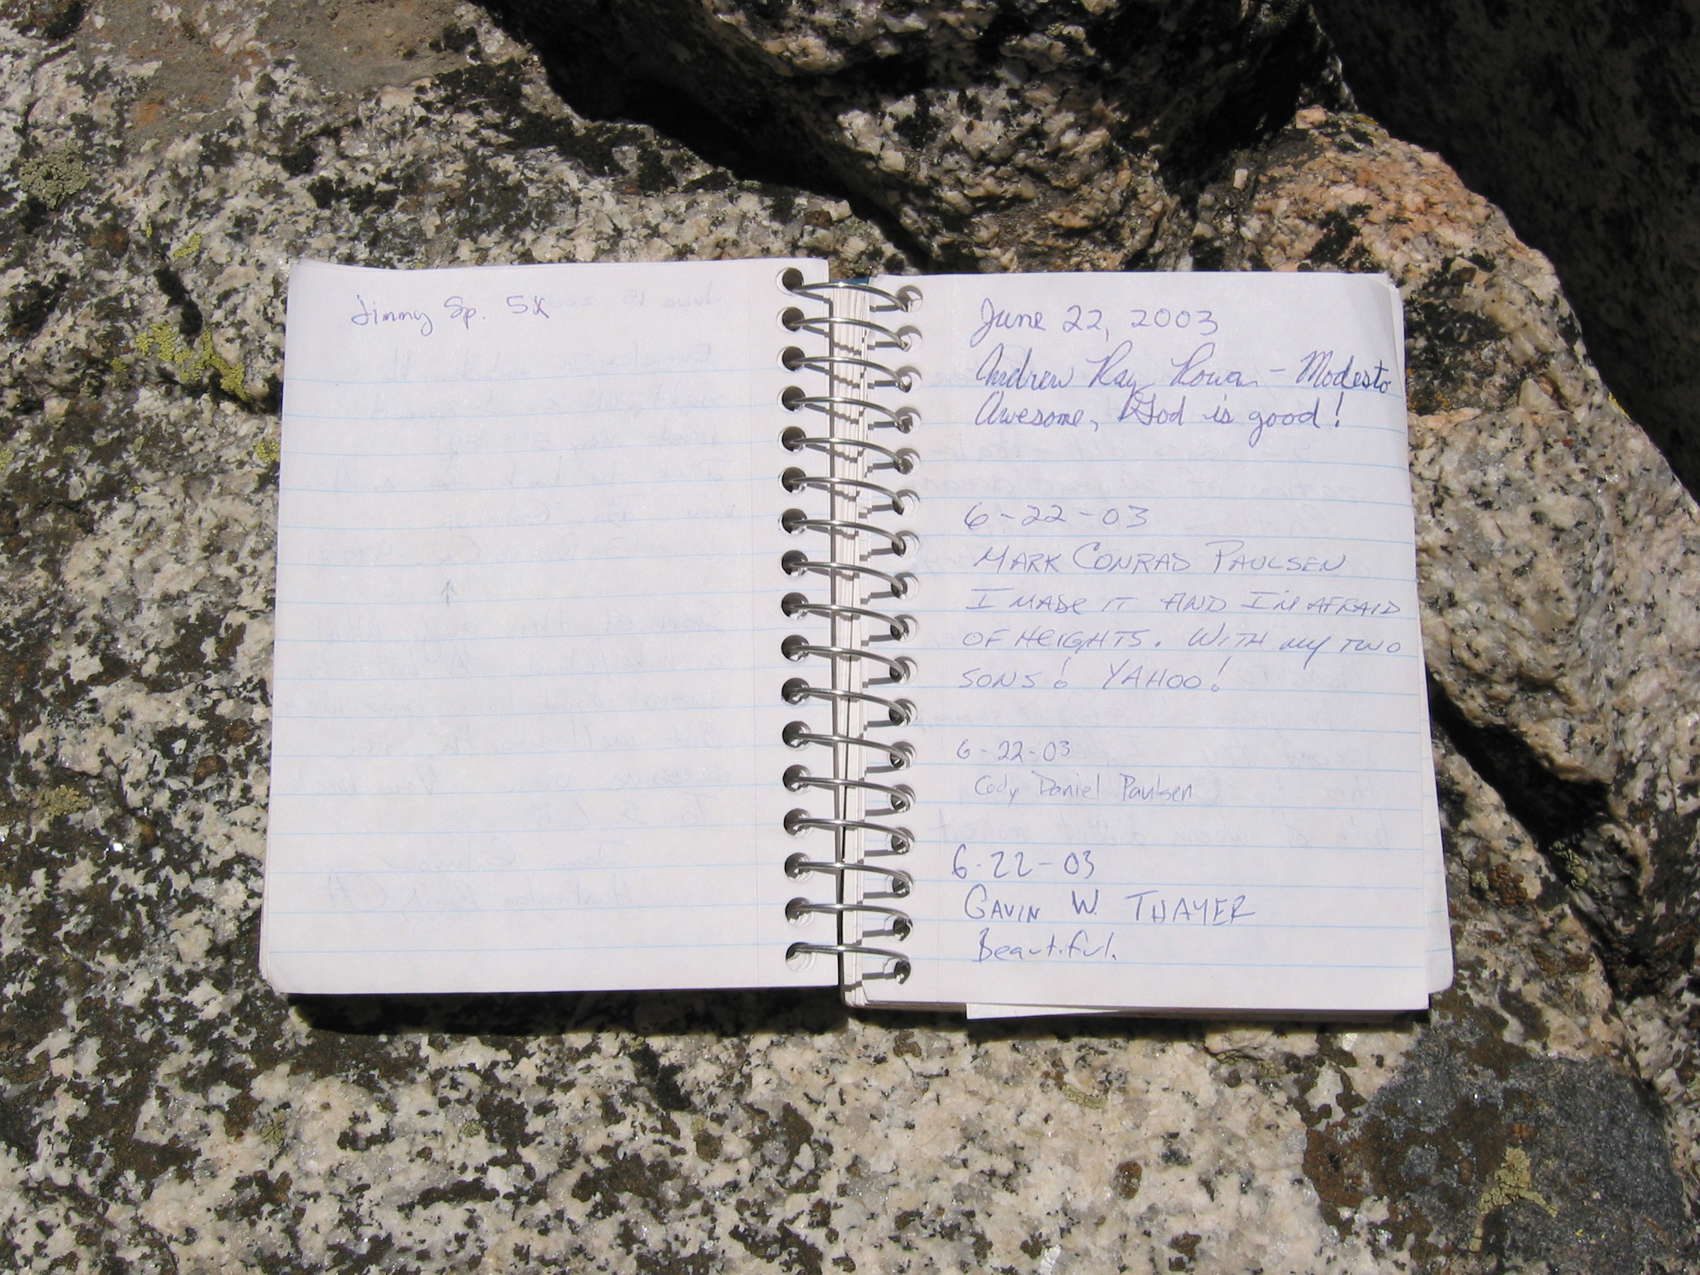 Jimmy Sp. 5K
June 22, 2003
Andrew Ray Rowan - Modesto
Awesome, God is good!
6-22-03
MARK CONRAD PAULSEN
I MADE IT AND I'M AFRAID
OF HEIGHTS. WITH MY TWO
SONS! YAHOO!
6-22-03
Cody Daniel Paulsen
6-22-03
GAVIN W. THAYER
Beautiful.